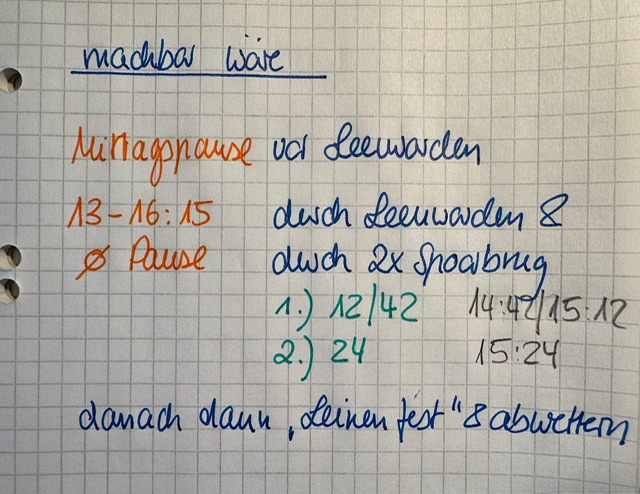 machbar wäre
Mittagspause vor Leeuwarden
13-16:15 durch Leeuwarden &
ø Pause durch 2x Spoorbrug
1.) 12/42 14:42/15:12
2.) 24 15:24
danach dann „Leinen fest“ & abwettern